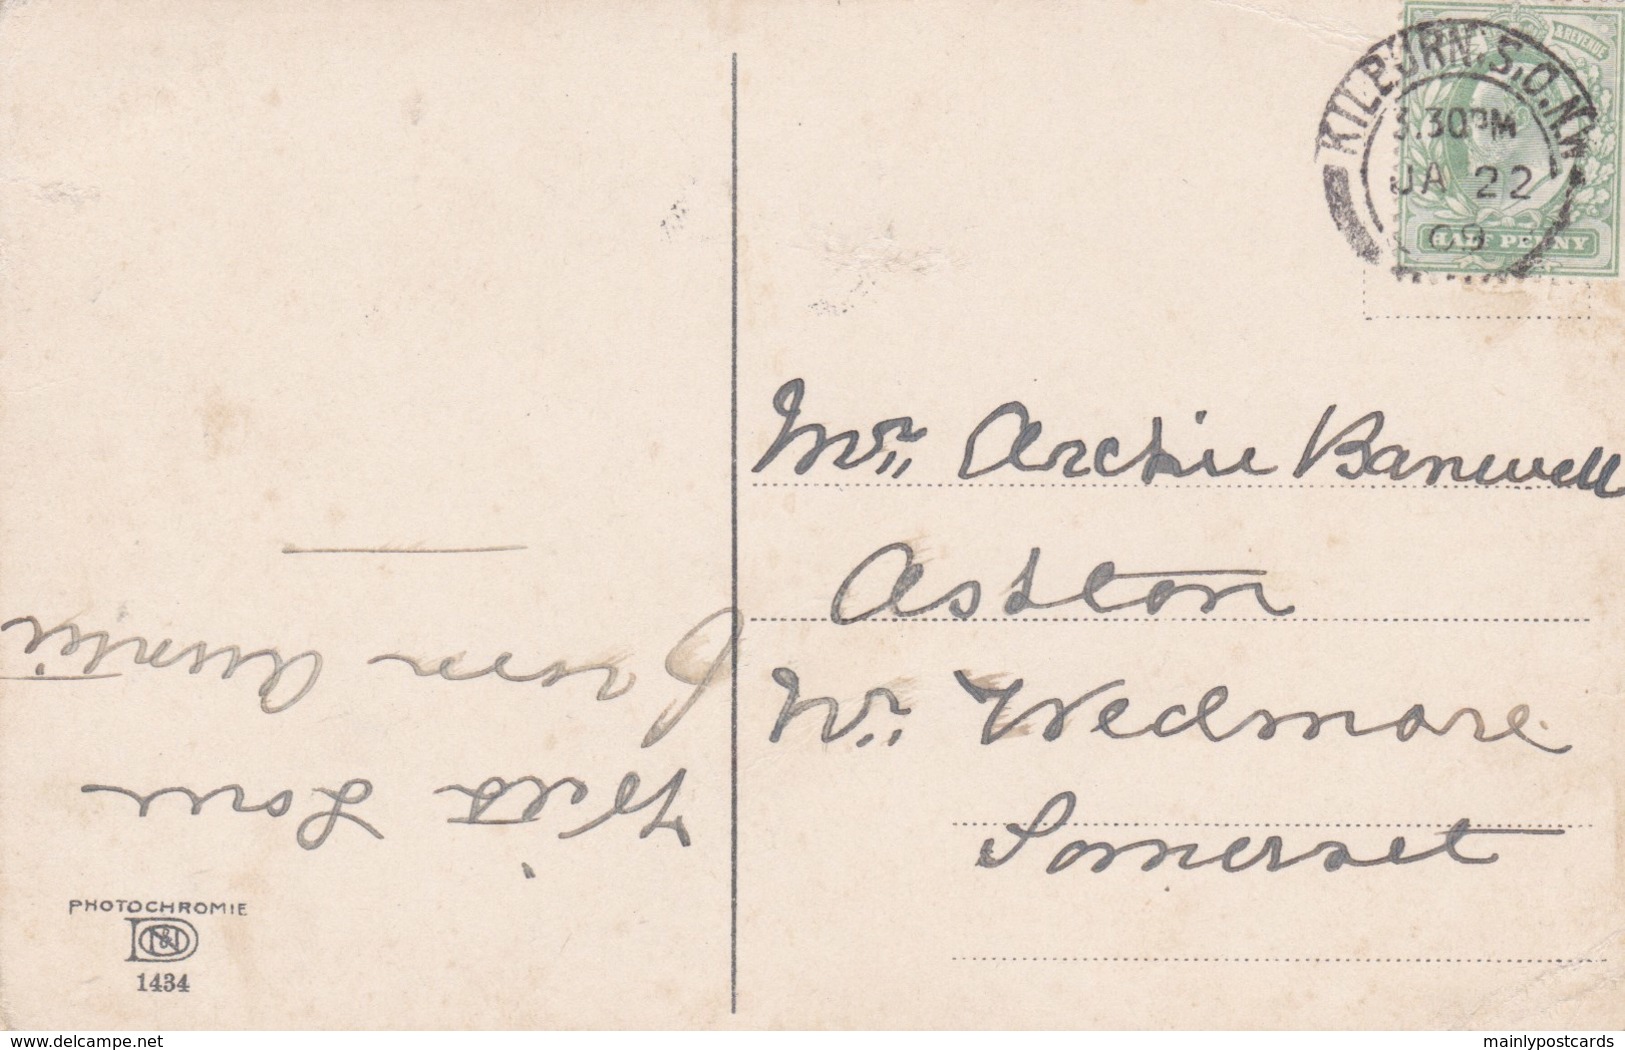 With Love
from Auntie
PHOTOCHROMIE
N&D
1434
KILBURN.S.O.N.W
3.30PM
JA 22
09
& REVENUE
HALF PENNY
Mr. Archie Banwell
Ashton
Nr. Wedmore
Somerset
delcampe.net
mainlypostcards